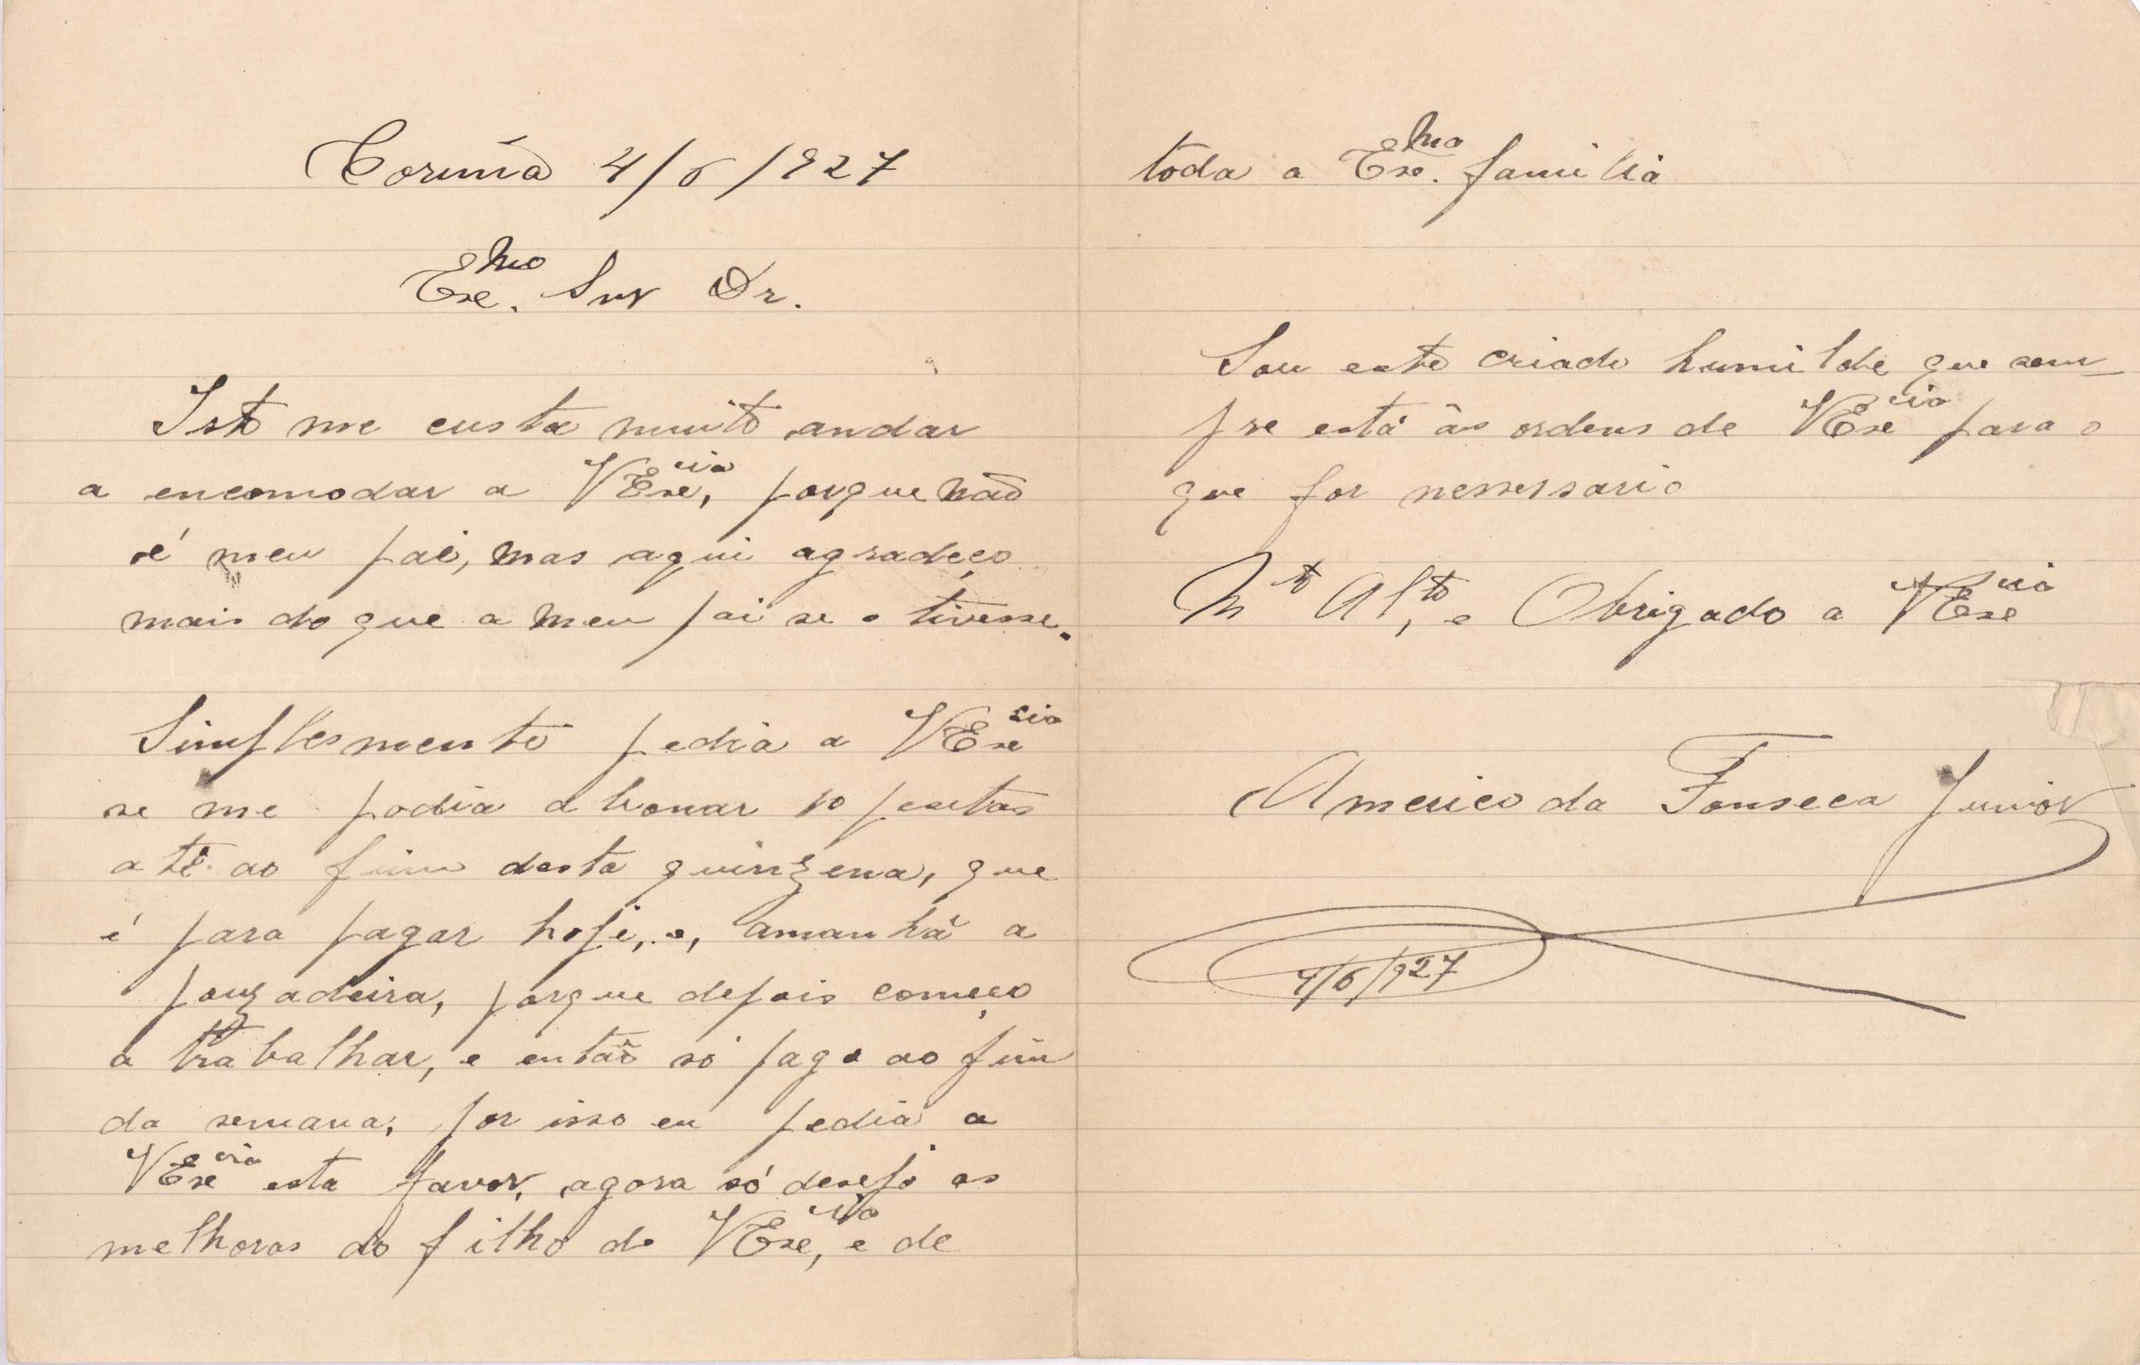 Coruña 4/6/927
Exe.mo Snr Dr.
Isto me custa muito andar
a encomodar a VExe,cia porque não
é meu pai, mas aqui agradeço
mais do que a meu pai se o tivesse.
Simplesmente pedia a VExecia
se me podia abonar 10 pesetas
até ao fim desta quinzena, que
é para pagar hoje, e, amanhã a
pouzadeira, porque depois começo
a trabalhar, e então só pago ao fim
da semana, por isso eu pedia a
VExecia este favor, agora só desejo as
melhoras do filho de VExe,cia e de
toda a Exe.ma familia
Sou este criado humilde que sem-
pre está ás ordens de VExecia para o
que for nessessario
Mto At,to e Obrigado a VExecia
Americo da Fonseca Junior
4/6/927